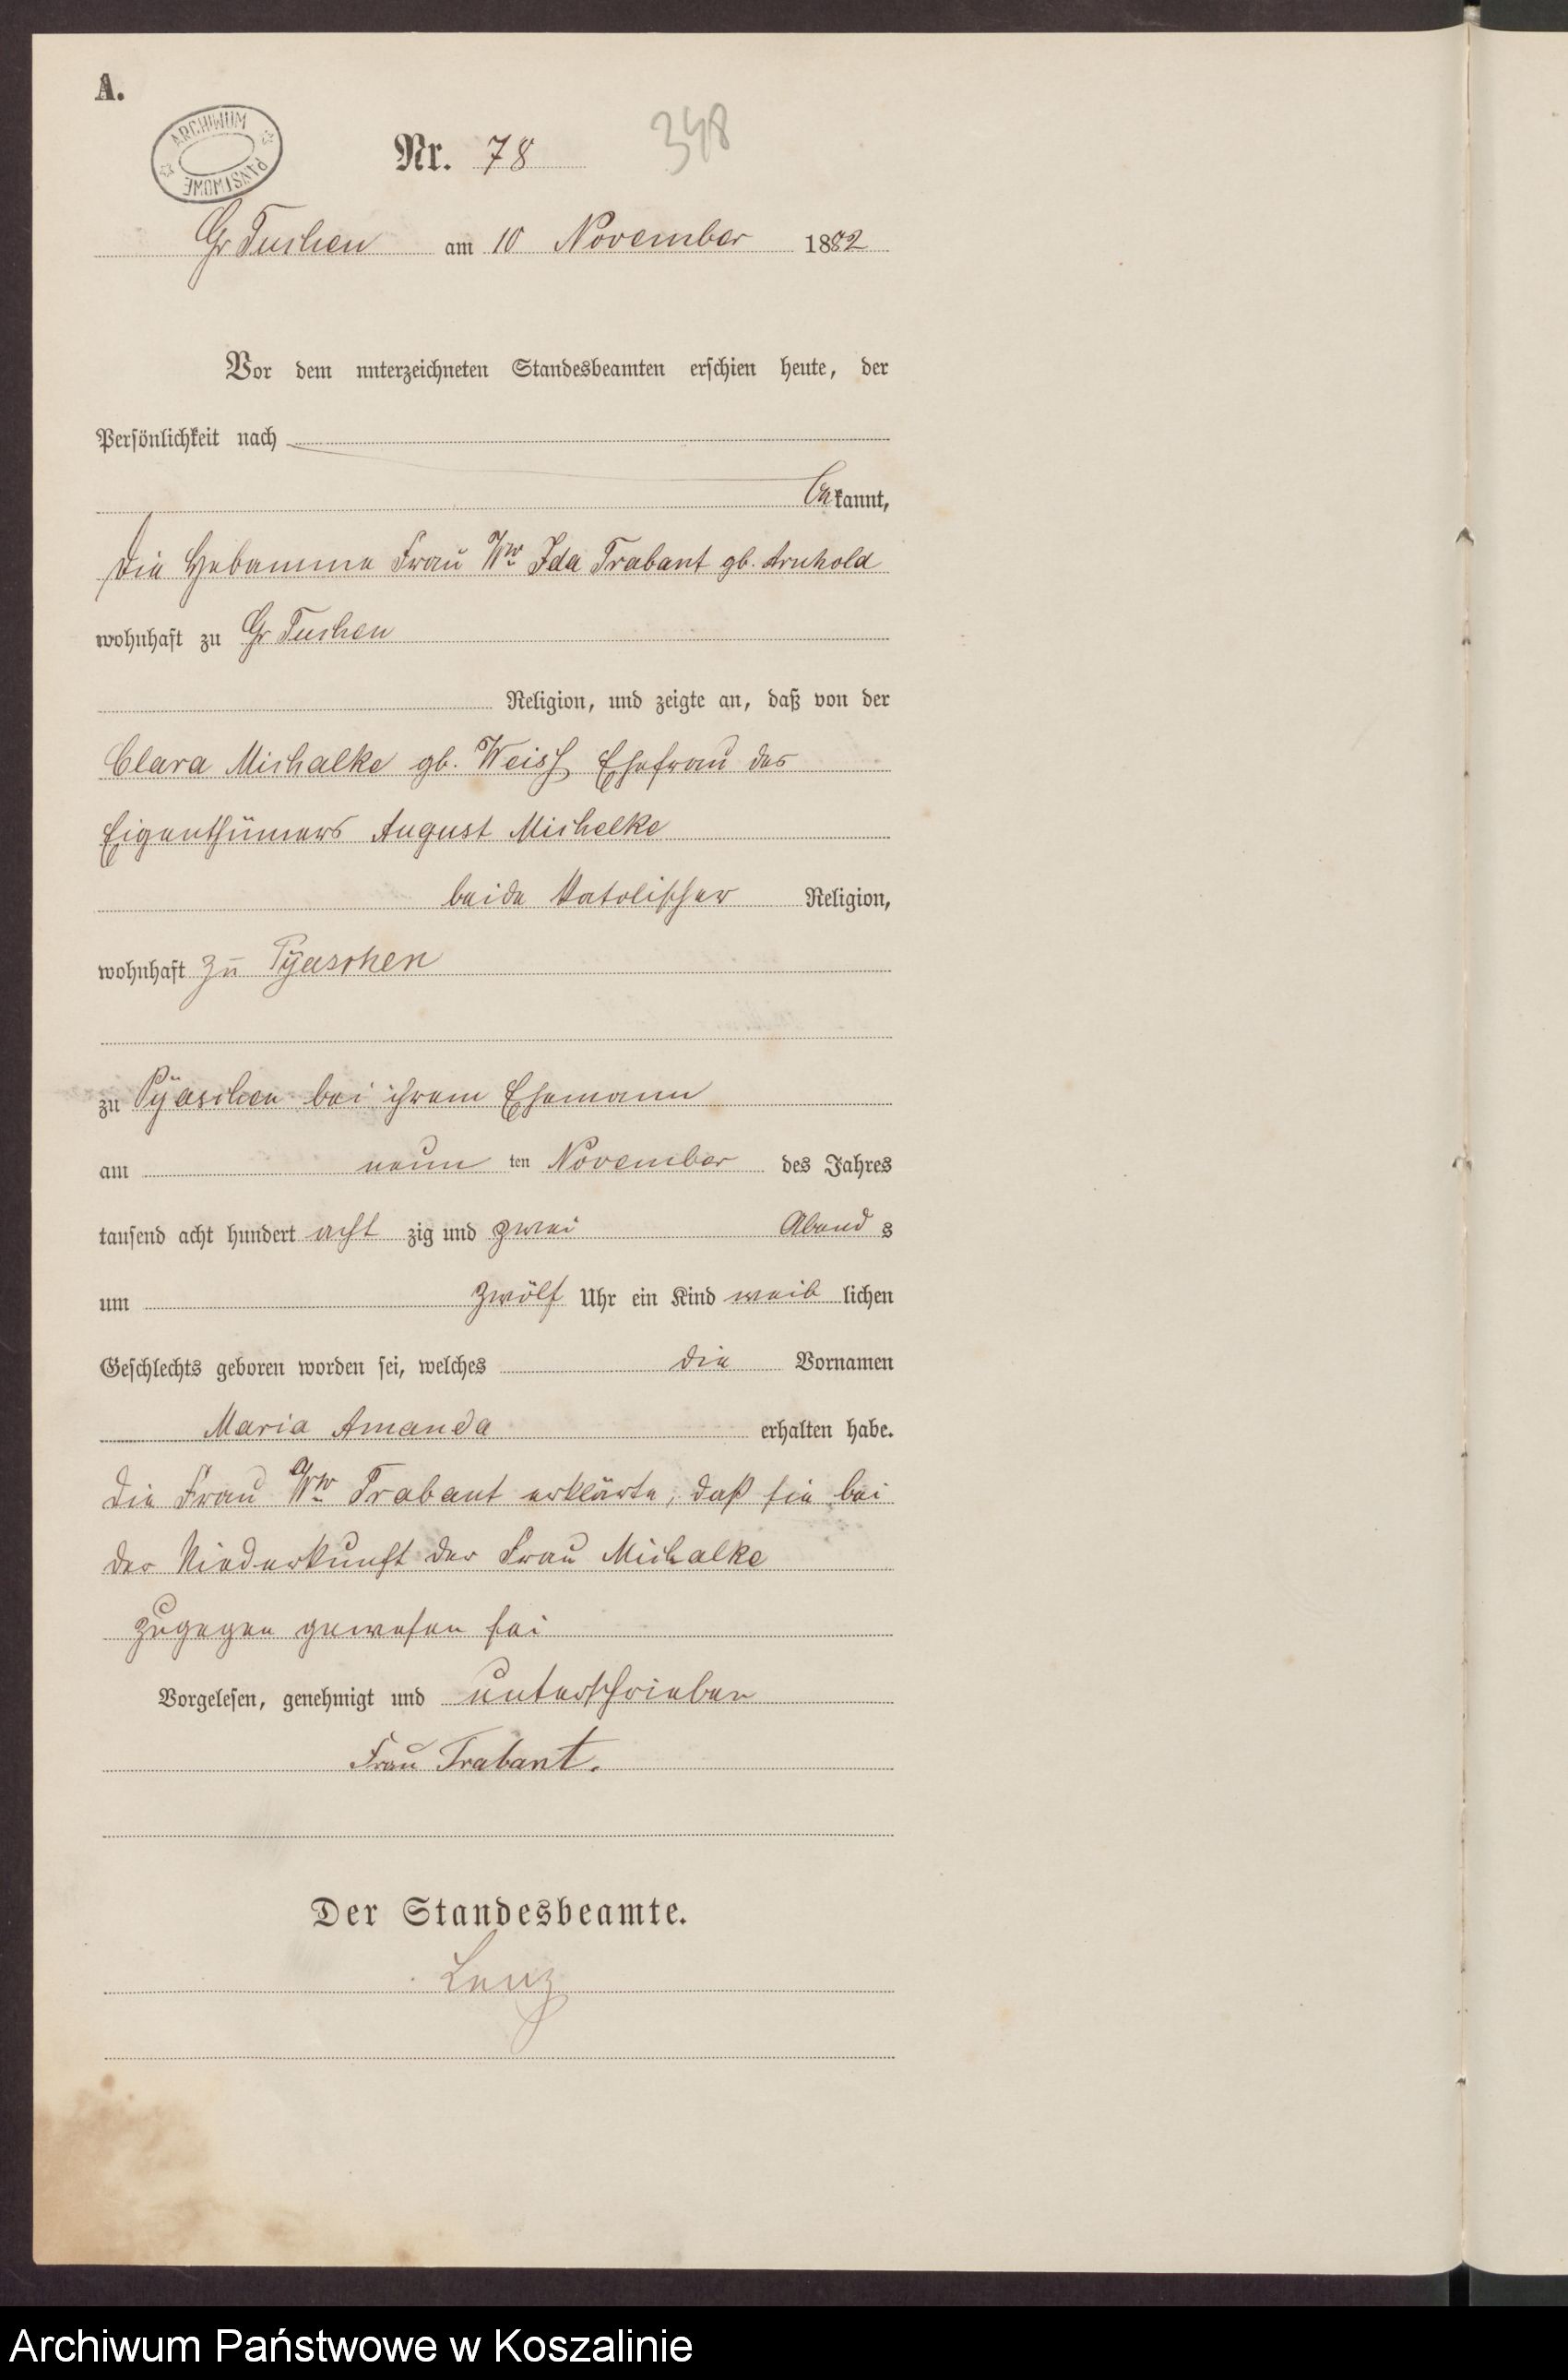 A.
ARCHIWUM PAŃSTWOWE
Nr. 78
348
Gr Tuchen am 10 November 1882
Vor dem unterzeichneten Standesbeamten erschien heute, der
Persönlichkeit nach
bekannt,
die Hebamme Frau Ww Ida Trabant gb. Arnhold
wohnhaft zu Gr Tuchen
Religion, und zeigte an, daß von der
Clara Michalke gb. Weiss Ehefrau des
Eigenthümers August Michelke
beide katolischer Religion,
wohnhaft zu Pyaschen
zu Pyaschen bei ihrem Ehemann
am neun ten November des Jahres
tausend acht hundert acht zig und zwei Abend s
um zwölf Uhr ein Kind weib lichen
Geschlechts geboren worden sei, welches die Vornamen
Maria Amanda erhalten habe.
Die Frau Ww Trabant erklärte, daß sie bei
der Niederkunft der Frau Michalke
zugegen gewesen sei
Vorgelesen, genehmigt und unterschrieben
Frau Trabant.
Der Standesbeamte.
Lenz
Archiwum Państwowe w Koszalinie